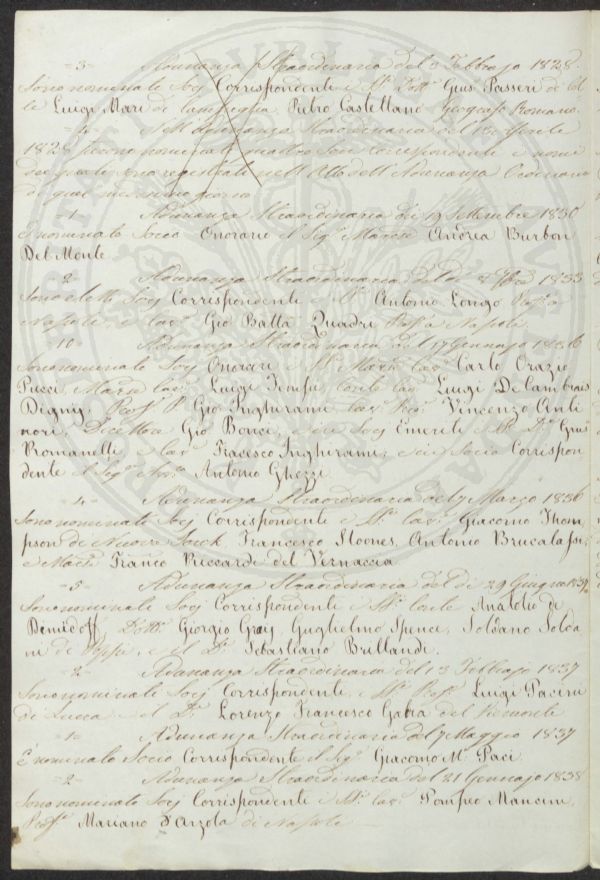 -3- Adunanza Straordinaria del 3 Febbrajo 1828.
Sono nominate Socj Correspondenti i Sig.i Dott. Gius. Passeri di
Luigi Mari de Pietro Castellano Geografo Romano.
-4- Nell'Adunanza Straordinaria del
1828 furono nominati quattro Socj Correspondenti i nomi
dei quali sono registrati nell'Atto dell'Adunanza Ordinaria
di quel medesimo giorno
-1- Adunanza Straordinaria di 19 Settembre 1830
È nominato Socio Onorario il Sig.e Marche Andrea Burbon
Del Monte
-2- Adunanza Straordinaria del dì 1833
Sono eletti Socj Correspondenti i Sig.i Antonio Longo
Napoli, e Cav.e Gio Batta Quadri Prof.e a Napoli.
-10- Adunanza Straordinaria del 17 Gennajo 1836
Sono nominate Socj Onorari i Sig.i March Cav.e Carlo Orazio
Pucci, March Cav.e Luigi Tempi, Conte Cav.e Luigi De Cambrais
Digny, Prof. P. Gio Inghirami Cav.e Vincenzo Anti
nori, Direttore Gio Bonci, e in Socj Emeriti i Sig.i D.e Gius
Romanelli e Cav.e Fracesco Inghirami; e in Socio Corrispon
dente il Sig.e Antonio Ghezzi
-4- Adunanza Straordinaria del 7 Marzo 1836
Sono nominate Socj Corrispondente i Sig.i Cav.e Giacomo Thom
pson di Nuova Jorck Francesco Sloones, Antonio Brucalassi,
e March Franco Riccardi del Vernaccia
-5- Adunanza Straordinaria del dì 29 Giugno
Sono nominate Socj Corrispondenti i Sig.i Conte Anatolio de
Demidoff, Dott. Giorgio Gray, Guglielmo Spence, Soldano Solda
ni di Poppi, e il D.e Sebastiano Brillandi.
-2- Adunanza Straordinaria del 13 Febbrajo 1837
Sono nominate Socj Corrispondenti i Sig.i Prof.e Luigi Pacini
di Lucca e il D.e Lorenzo Francesco Gatta del Piemonte
-1- Adunanza Straordinaria del 7 Maggio 1837
È nominato Socio Corrispondente il Sig.e Giacomo M. Paci.
-2- Adunanza Straordinaria del 21 Gennajo 1838
Sono nominate Socj Corrispondenti i Sig.i Cav.e Pompeo Mancini,
Prof.e Mariano D'Arzola di Napoli